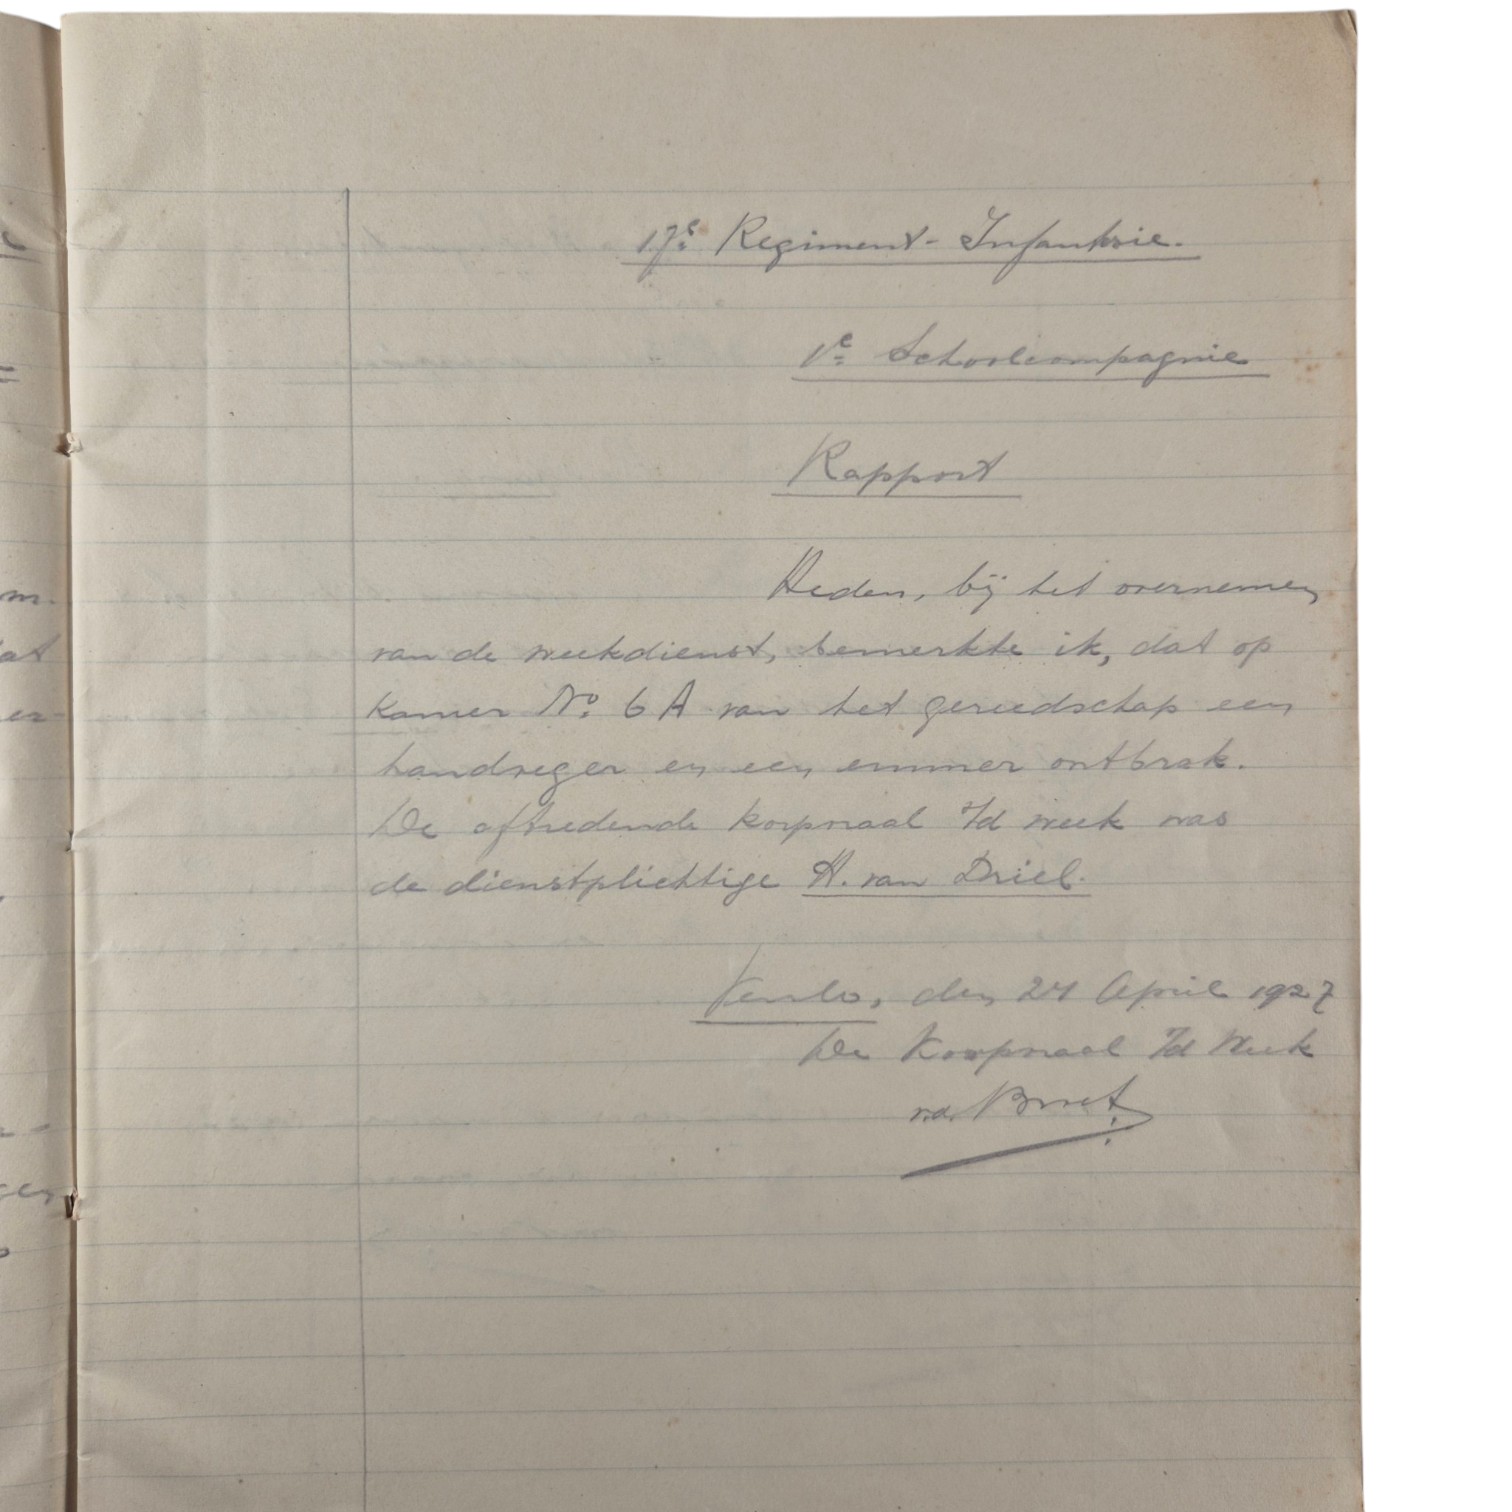 17e Regiment-Infanterie.
1e Schoolcompagnie
Rapport
Heden, bij het overnemen
van de weekdienst, bemerkte ik, dat op
kamer No. 6 A van het gereedschap een
handveger en een emmer ontbrak.
De aftredende korporaal v/d week was
de dienstplichtige H. van Driel.
Venlo, den 24 April 1927
De Korporaal v/d Week
v.d.